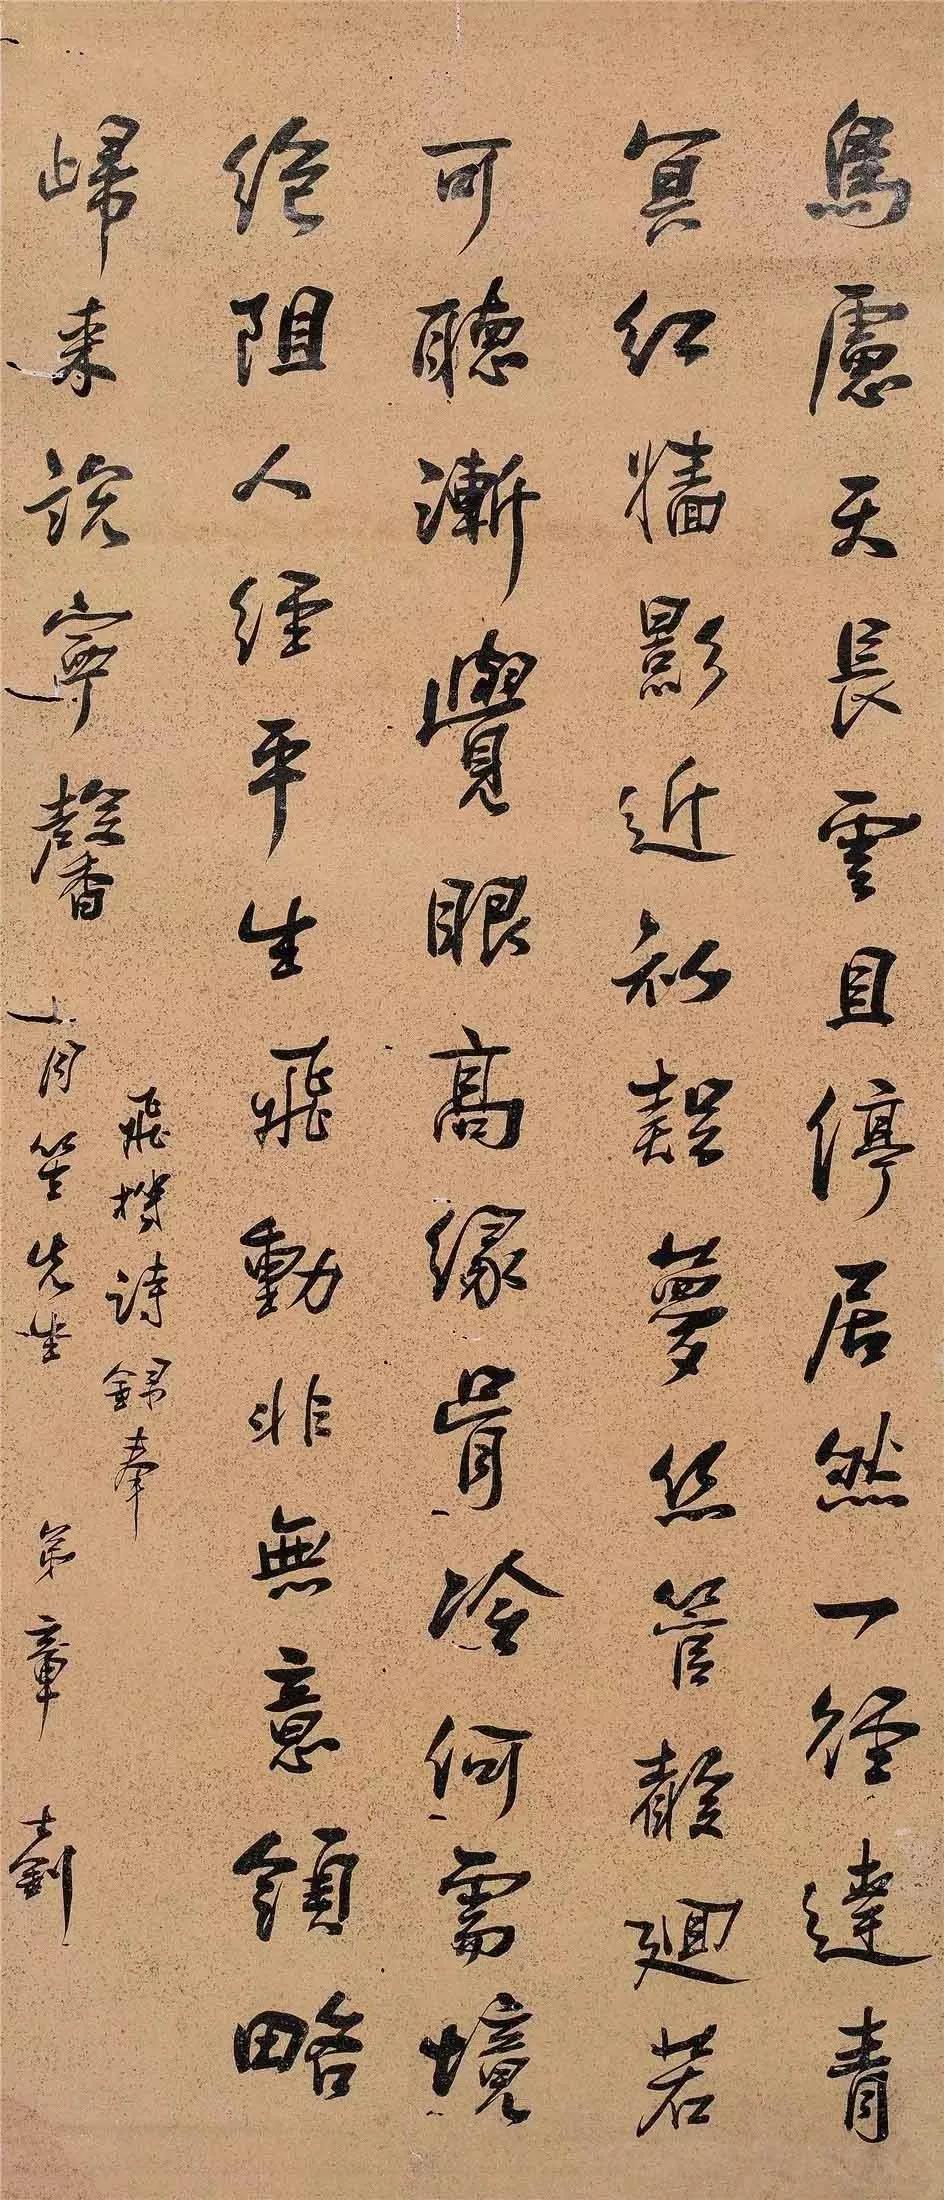 鳥慮天長雲且停居然一徑達青
冥紅牆影近初疑夢絲管聲迴若
可聽漸覺眼高緣骨冷何需境
絕阻人經平生飛動非無意領略
歸來說寧馨
飛機詩錄奉
月笙先生 弟章士釗